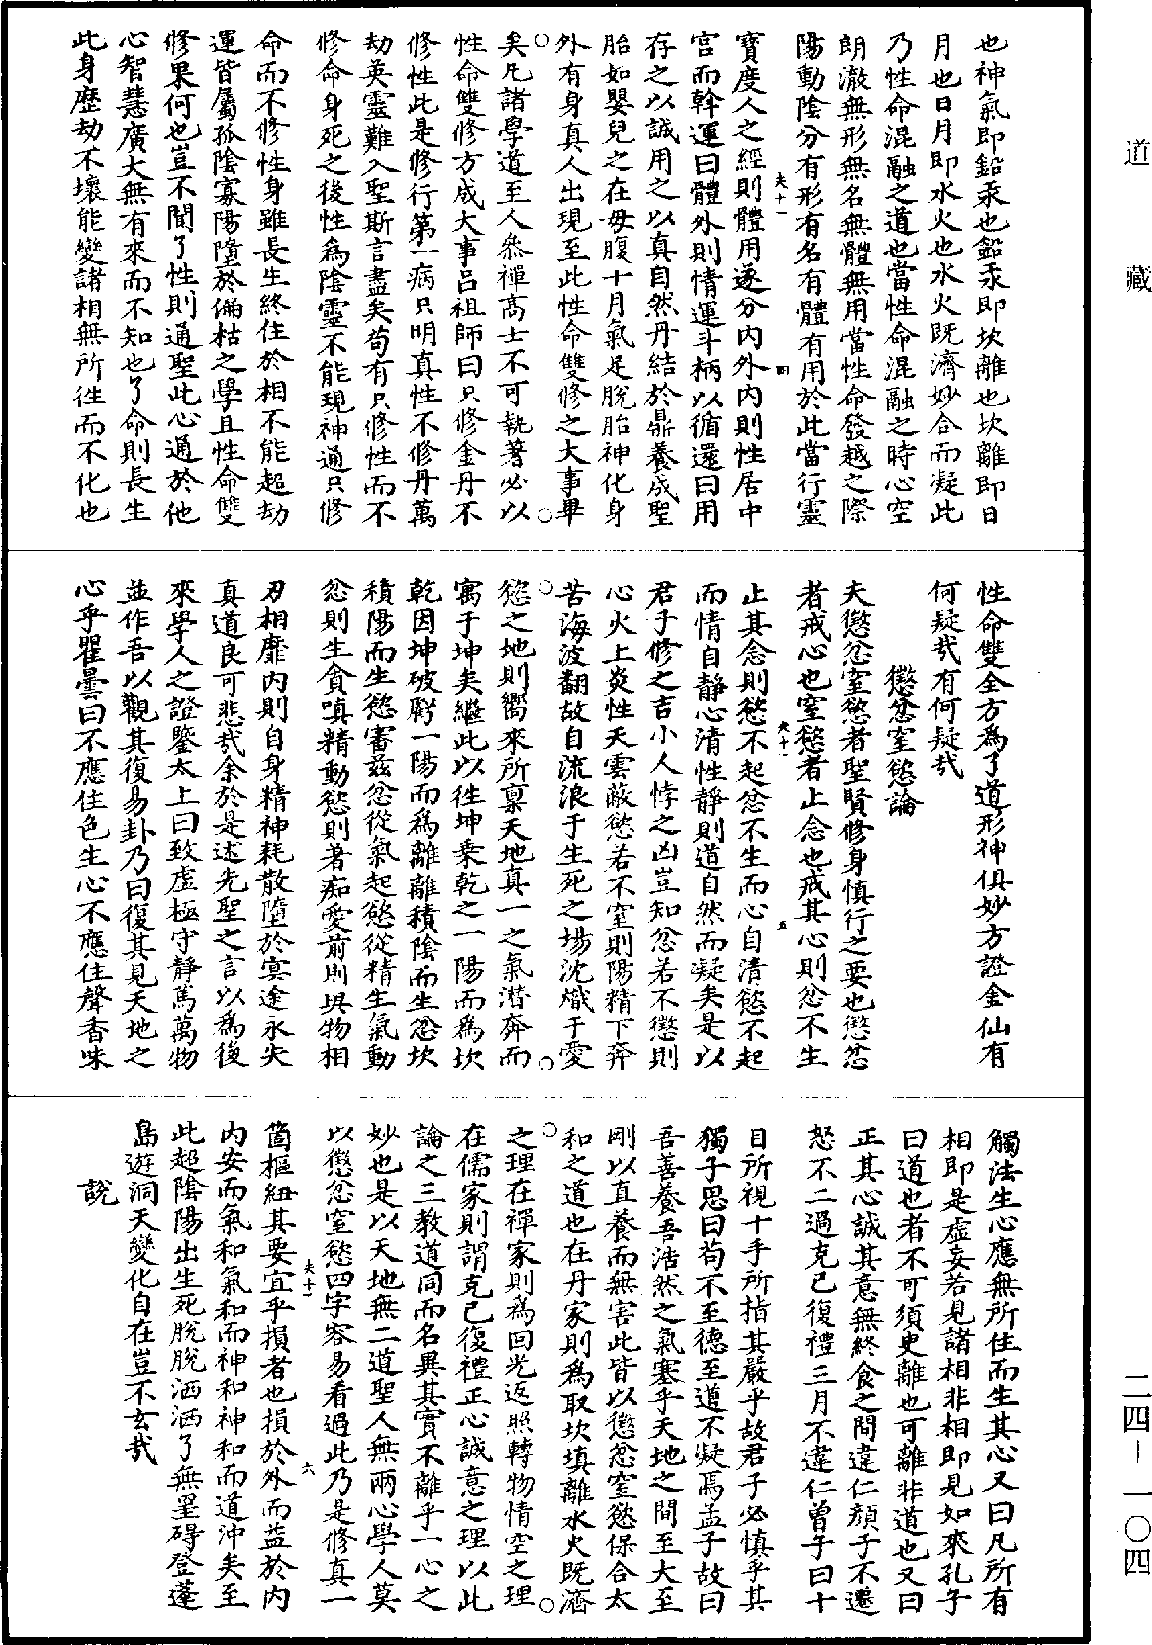 道藏
也神氣即鉛汞也鉛汞即坎離也坎離即日
月也日月即水火也水火既濟妙合而凝此
乃性命混融之道也當性命混融之時心空
朗澈無形無名無體無用當性命發越之際
陽動陰分有形有名有體有用於此當行靈
寶度人之經則體用遂分內外內則性居中
夫十一
四
宮而斡運曰體外則情運斗柄以循還曰用
存之以誠用之以真自然丹結於鼎養成聖
胎如嬰兒之在母腹十月氣足脫胎神化身
外有身真人出現至此性命雙修之大事畢
矣凡諸學道至人叅禪高士不可執著必以
性命雙修方成大事呂祖師曰只修金丹不
修性此是修行第一病只明真性不修丹萬
劫英靈難入聖斯言盡矣苟有只修性而不
修命身死之後性為陰靈不能現神通只修
命而不修性身雖長生終住於相不能超劫
運皆屬孤陰寡陽墮於偏枯之學且性命雙
修果何也豈不聞了性則通聖此心通於他
心智慧廣大無有來而不知也了命則長生
此身歷劫不壞能變諸相無所往而不化也
性命雙全方為了道形神俱妙方證金仙有
何疑哉有何疑哉
懲忿窒慾論
夫懲忿窒慾者聖賢修身慎行之要也懲忿
者戒心也窒慾者止念也戒其心則忿不生
夫十一
五
止其念則慾不起忿不生而心自清慾不起
而情自靜心清性靜則道自然而凝矣是以
君子修之吉小人悖之凶豈知忿若不懲則
心火上炎性天雲蔽慾若不窒則陽精下奔
苦海波翻故自流浪于生死之場沈熾于愛
慾之地則嚮來所禀天地真一之氣潛奔而
寓于坤矣繼此以往坤乘乾之一陽而為坎
乾因坤破虧一陽而為離離積陰而生忿坎
積陽而生慾審茲忿從氣起慾從精生氣動
忿則生貪嗔精動慾則著痴愛前則與物相
刃相靡內則自身精神耗散墮於冥途永失
真道良可悲哉余於是述先聖之言以為後
來學人之證鑒太上曰致虛極守靜篤萬物
並作吾以觀其復易卦乃曰復其見天地之
心乎瞿曇曰不應住色生心不應住聲香味
觸法生心應無所住而生其心又曰凡所有
相即是虛妄若見諸相非相即見如來孔子
曰道也者不可須臾離也可離非道也又曰
正其心誠其意無終食之間違仁顏子不遷
怒不二過克己復禮三月不違仁曾子曰十
目所視十手所指其嚴乎故君子必慎乎其
獨子思曰苟不至德至道不凝焉孟子故曰
吾善養吾浩然之氣塞乎天地之間至大至
剛以直養而無害此皆以懲忿窒慾保合太
和之道也在丹家則為取坎填離水火既濟
之理在禪家則為回光返照轉物情空之理
在儒家則謂克己復禮正心誠意之理以此
論之三教道同而名異其實不離乎一心之
妙也是以天地無二道聖人無兩心學人莫
以懲忿窒慾四字容易看過此乃是修真一
夫十一
六
箇樞紐其要宜乎損者也損於外而益於內
內安而氣和氣和而神和神和而道沖矣至
此超陰陽出生死脫脫洒洒了無罣碍登蓬
島遊洞天變化自在豈不玄哉
說
二四-一〇四